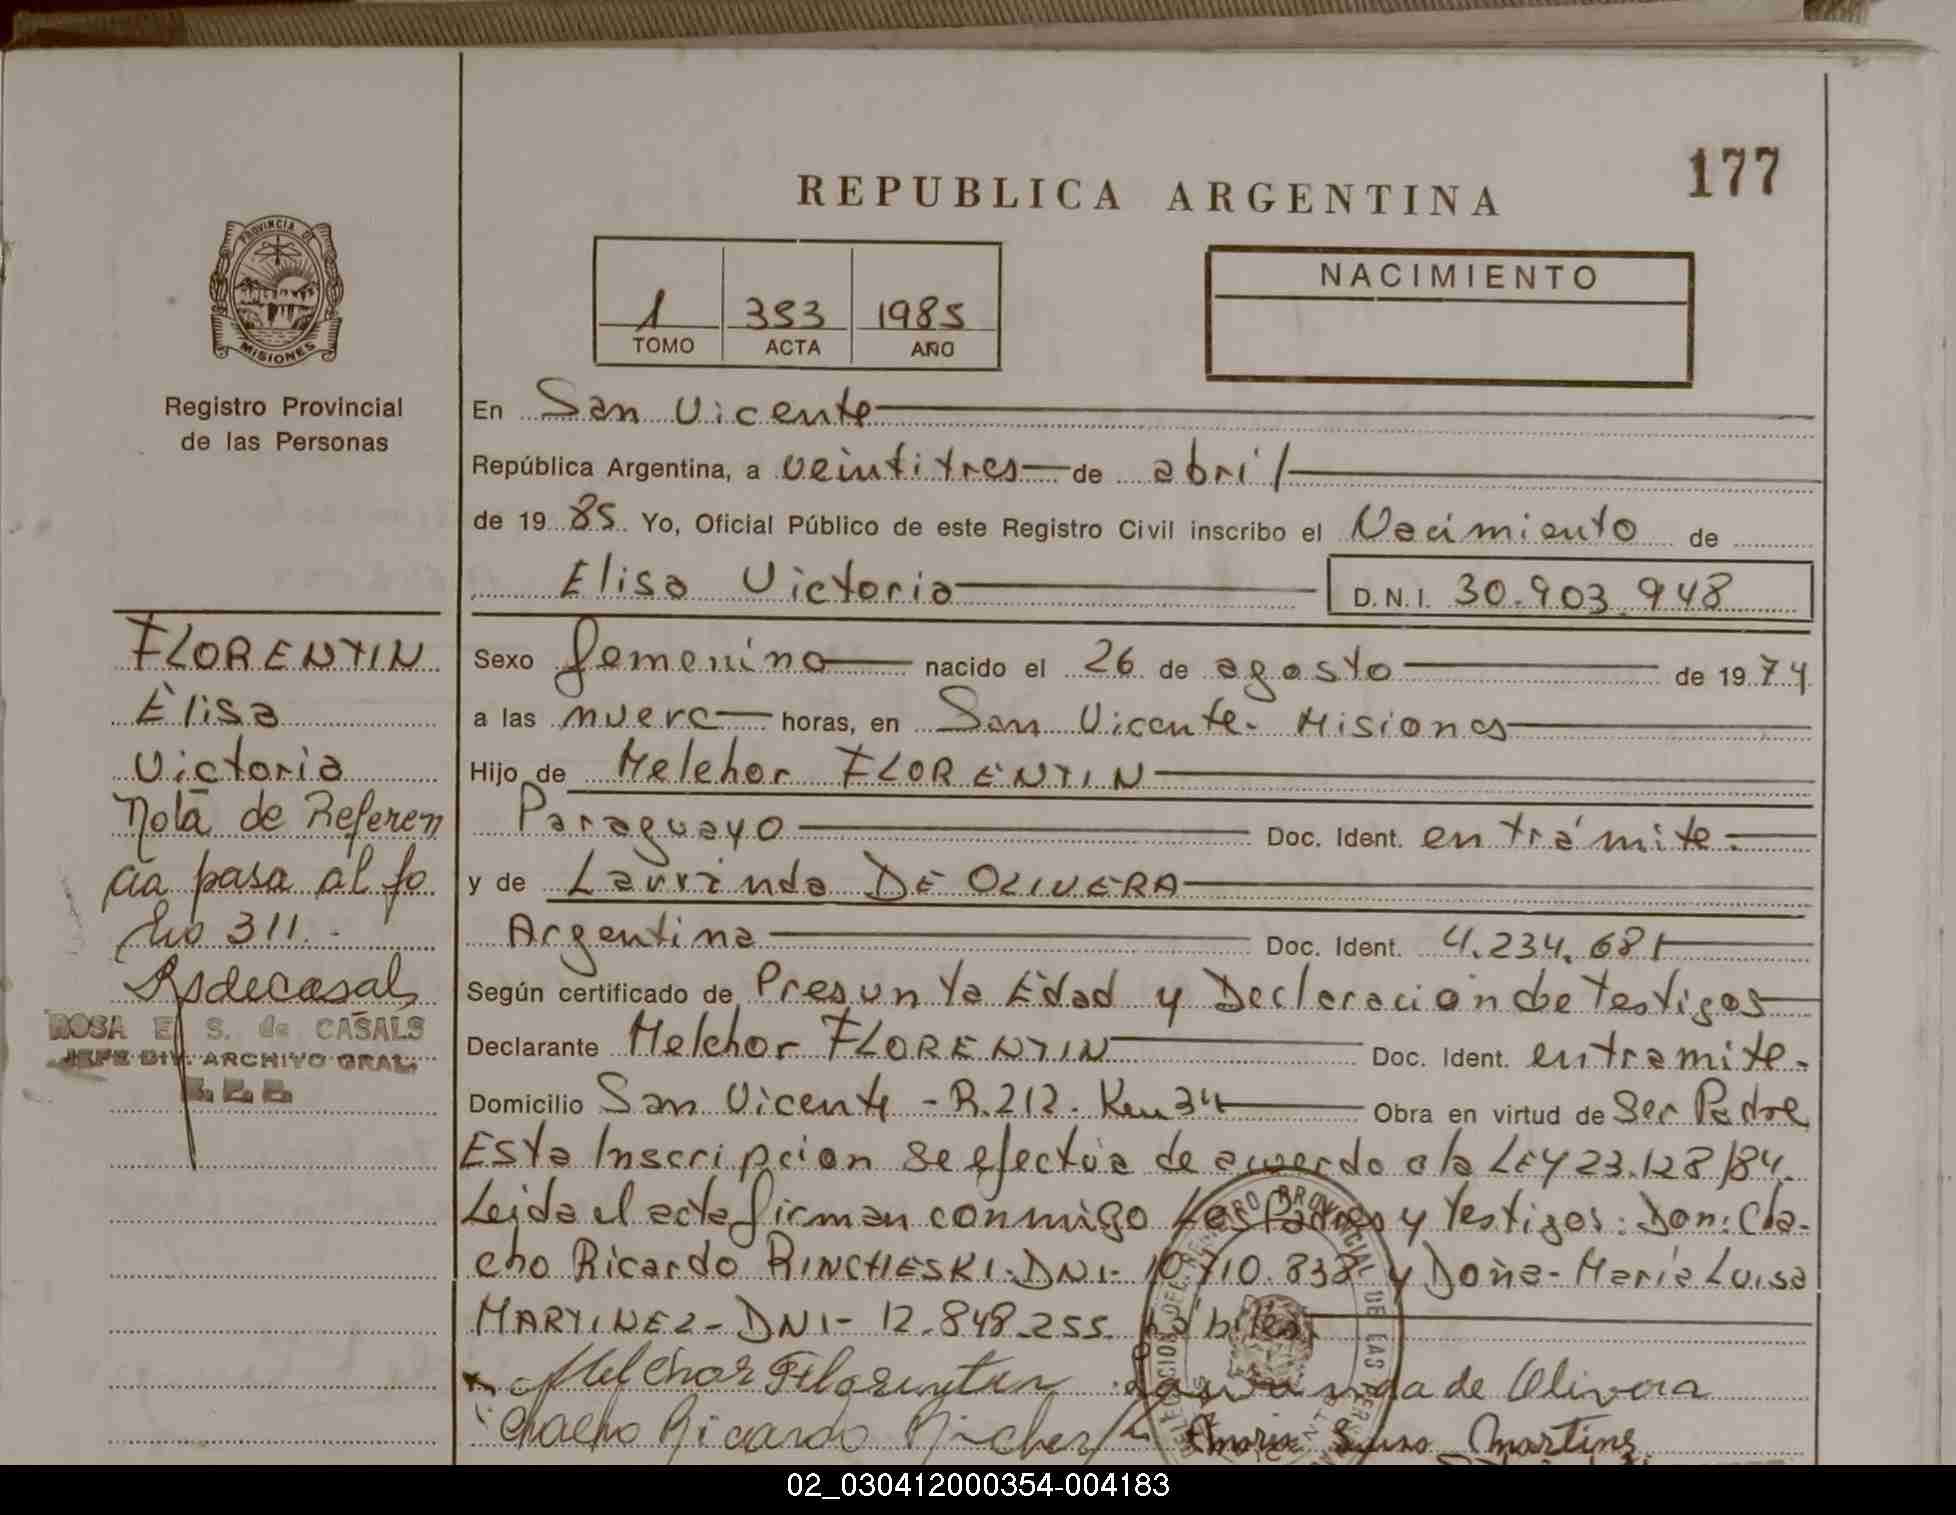 177
REPUBLICA ARGENTINA
PROVINCIA DE
MISIONES
Registro Provincial
de las Personas
1 353 1985
TOMO ACTA AÑO
NACIMIENTO
En San Vicente
República Argentina, a veintitres de abril
de 1985 Yo, Oficial Público de este Registro Civil inscribo el Nacimiento de
Elisa Victoria D.N.I. 30.903.948
FLORENTIN
Elisa
Victoria
Nota de Referen
cia pasa al fo
lio 311.-
ROSA E. S. de CASALS
JEFE DIV. ARCHIVO GRAL.
Sexo femenino nacido el 26 de agosto de 1974
a las nueve horas, en San Vicente - Misiones
Hijo de Melchor FLORENTIN
Paraguayo Doc. Ident. en trámite.
y de Laurinda DE OLIVERA
Argentina Doc. Ident. 4.234.681
Según certificado de Presunta Edad y Declaración de Testigos
Declarante Melchor FLORENTIN Doc. Ident. en tramite.
Domicilio San Vicente - R.212. Km 34 Obra en virtud de Ser Padre
Esta Inscripcion se efectúa de acuerdo a la LEY 23.128/84.
Leida el acta firman conmigo los Padres y testigos: Don: Cha-
cho Ricardo RINCHESKI - DNI - 10.710.838 y Doña - María Luisa
MARTINEZ - DNI - 12.848.255. hábiles
Melchor Florentin Laurinda de Olivera
Chacho Ricardo
02_030412000354-004183